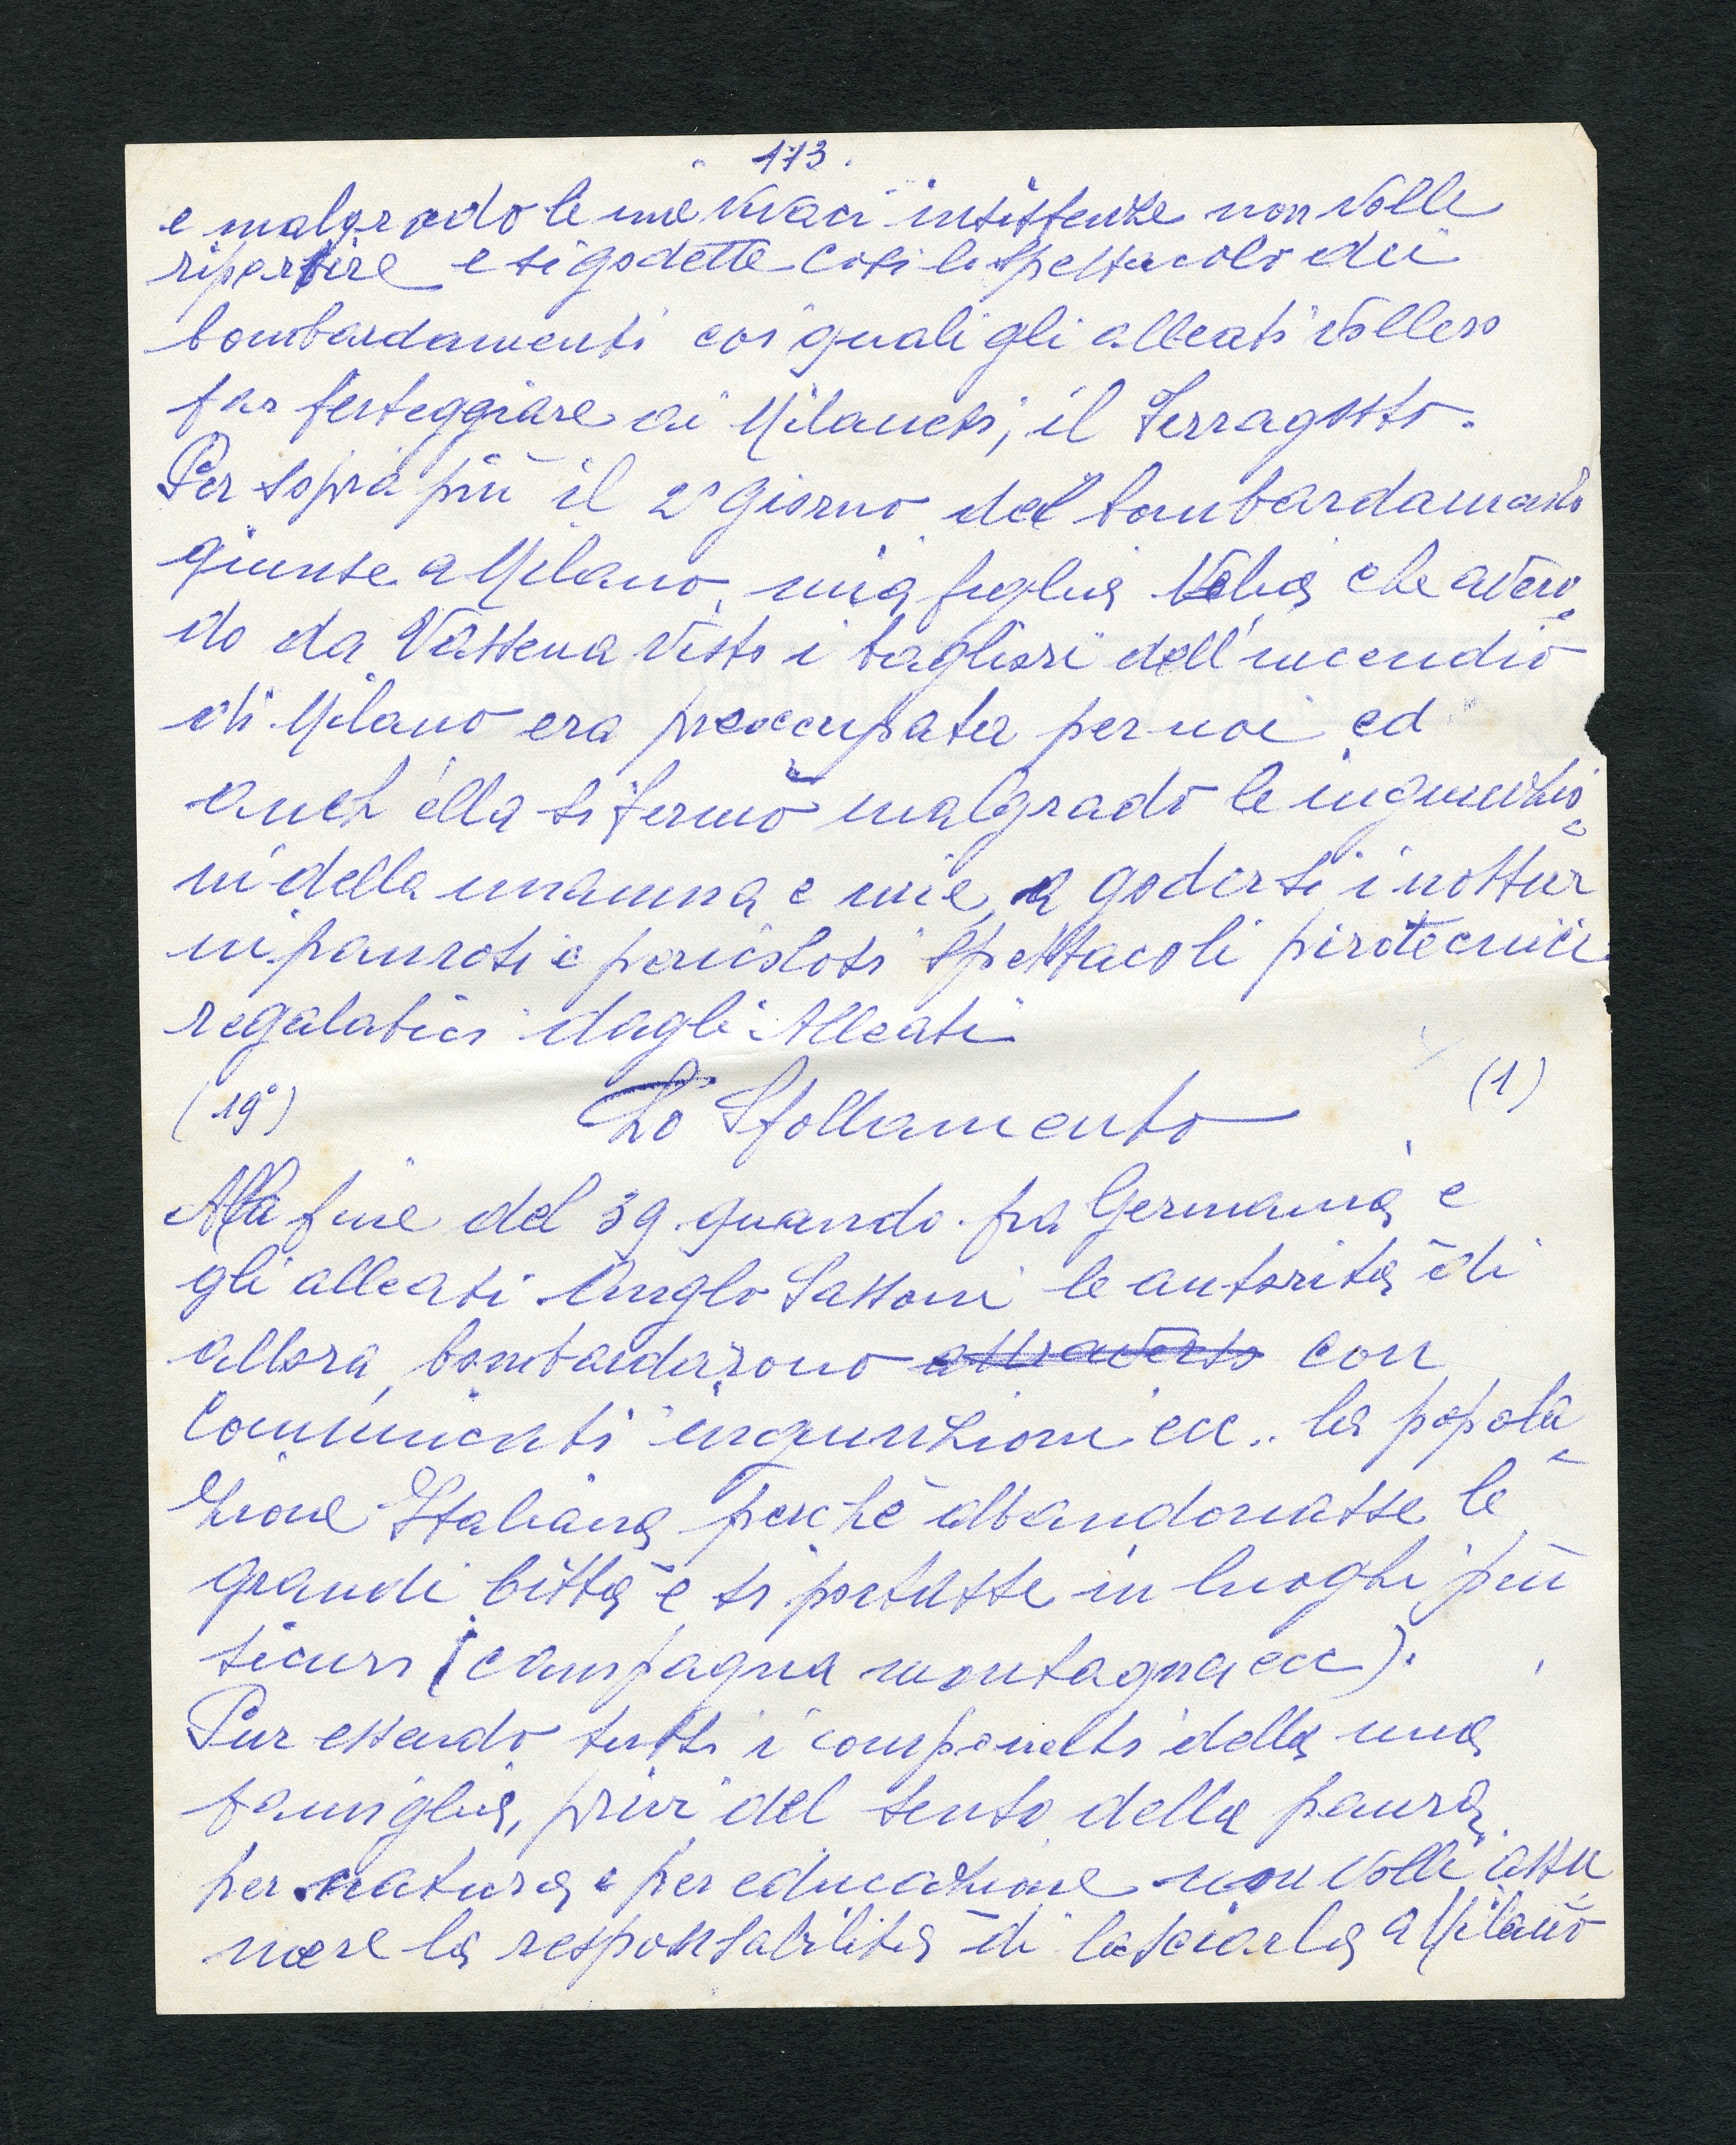 173.
e malgrado le mie vivaci insistenze non volle
ripartire e si godette così lo spettacolo dei
bombardamenti coi quali gli alleati vollero
far festeggiare ai Milanesi, il Ferragosto.
Per sopra più il 2° giorno del bombardamento
giunse a Milano, mia figlia Velia che aven=
do da Vassena visto i bagliori dell'incendio
di Milano era preoccupata per noi ed
anch'ella si fermò malgrado le ingiunzio=
ni della mamma e mie, a godersi i nottur
ni paurosi e pericolosi spettacoli pirotecnici
regalatici dagli Alleati
(19°) Lo Sfollamento (1)
Alla fine del 39 quando fra Germania e
gli alleati Anglo Sassoni le autorità di
allora, bombardarono attraverso con
comunicati ingiunzioni ecc.. la popola=
zione Italiana perchè abbandonasse le
grandi città e si portasse in luoghi più
sicuri (campagna montagna ecc).
Pur essendo tutti i componenti della mia
famiglia, privi del senso della paura,
per natura e per educazione non volli assu
mere la responsabilità di lasciarla a Milano